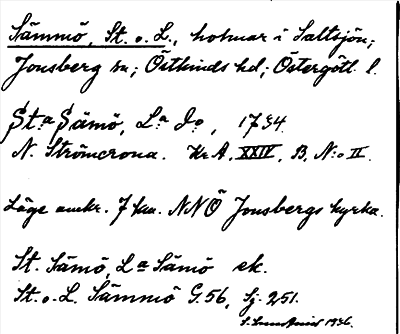 Sämmö, St. o. L., holmar i Saltsjön;
Jonsberg sn; Östkinds hd; Östergötl. l.
St:a Sämö, L:a Do, 1734.
N. Strömcrona. Kr. A. XXIV, B. N:o II.
Läge omkr. 7 km. NNÖ Jonsbergs kyrka.
St. Sämö, L:a Sämö ek.
St. o. L. Sämmö G. 56, Sj. 251.
1936.